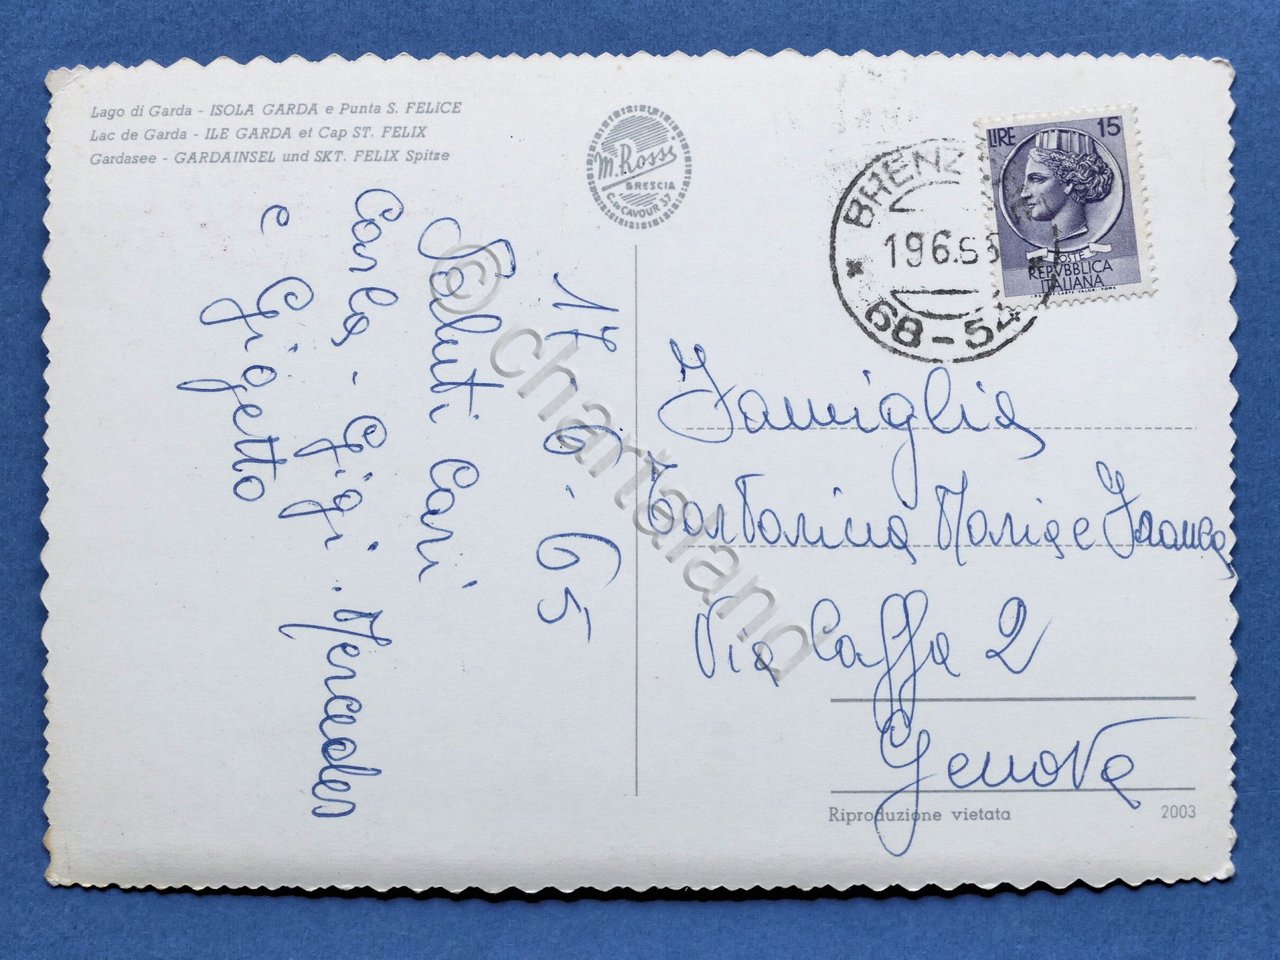 Lago di Garda - ISOLA GARDA e Punta S. FELICE
Lac de Garda - ILE GARDA et Cap ST. FELIX
Gardasee - GARDAINSEL und SKT. FELIX Spitze
M. Rossi
BRESCIA
C.so CAVOUR 37
LIRE 15
POSTE
REPVBBLICA
ITALIANA
BRENZ
196.65
68-54
17-6-65
Saluti Cari
Carla - Gigi. Mercedes
e Gigetto
Famiglia
Tartarina Maria e Franca
Via Caffa 2
Genova
Riproduzione vietata
2003
© chartaland